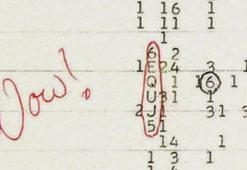 1 16 1
1 11 1
1
6 2
1 E 24 3 1
Wow! Q 1 1 6
U 31 1
2 J 1 31 3
5 1
14 1
1 3 1
1